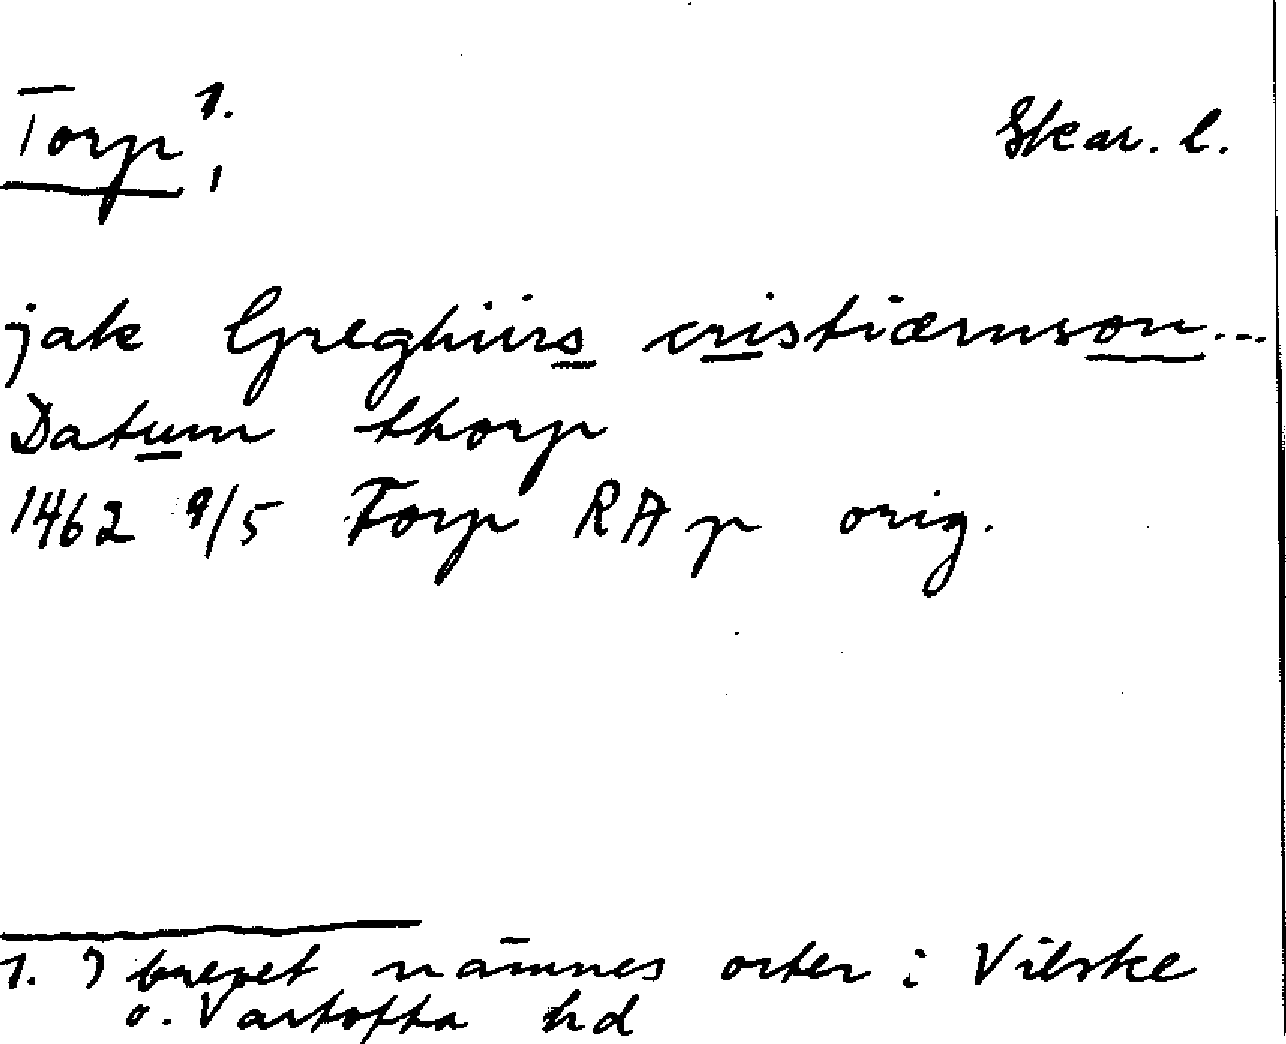 Torp 1., Skar. l.
jak Greghiirs cristiærnson...
Datum thorp
1462 9/5 Torp RAp orig.
1. I brevet nämnes orter i Vilske
o. Vartofta hd